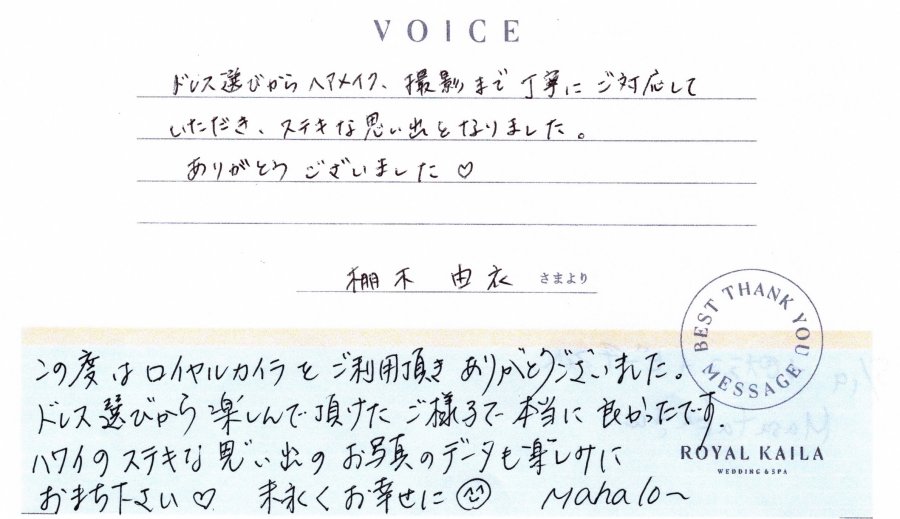 VOICE
ドレス選びからヘアメイク、撮影まで丁寧にご対応して
いただき、ステキな思い出となりました。
ありがとうございました♡
棚木 由衣 さまより
BEST THANK YOU MESSAGE
この度はロイヤルカイラをご利用頂きありがとうございました。
ドレス選びから楽しんで頂けたご様子で本当に良かったです。
ハワイのステキな思い出のお写真のデータも楽しみに
おまち下さい♡ 末永くお幸せに☺ Mahalo〜
ROYAL KAILA
WEDDING & SPA